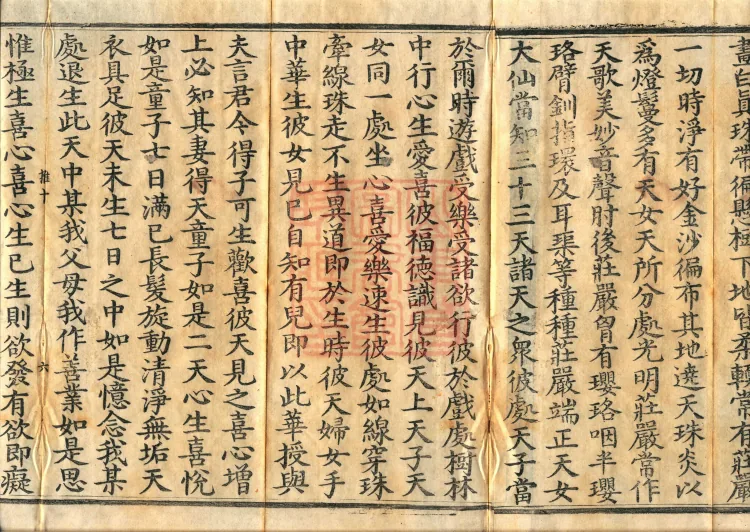 畫白真珠帶徧懸極下地皆柔輭常有莊嚴
一切時淨有好金沙徧布其地遶天珠炎以
爲燈鬘多有天女天所分處光明莊嚴當作
天歌美妙音聲肘後莊嚴胷有瓔珞咽半瓔
珞臂釧指環及耳璖等種種莊嚴端正天女
大仙當知三十三天諸天之衆彼處天子當
於爾時遊戲受樂受諸欲行彼於戲處樹林
中行心生愛喜彼福德識見彼天上天子天
女同一處坐心喜愛樂速生彼處如線穿珠
牽線珠走不生異道即於生時彼天婦女手
中華生彼女見已自知有兒即以此華授與
夫言君今得子可生歡喜彼天見之喜心增
上必知其妻得天童子如是二天心生喜悅
如是童子七日滿已長髮旋動清淨無垢天
衣具足彼天未生七日之中如是憶念我某
處退生此天中某我父母我作善業如是思
惟極生喜心喜心生已生則欲發有欲即癡
雜十
六